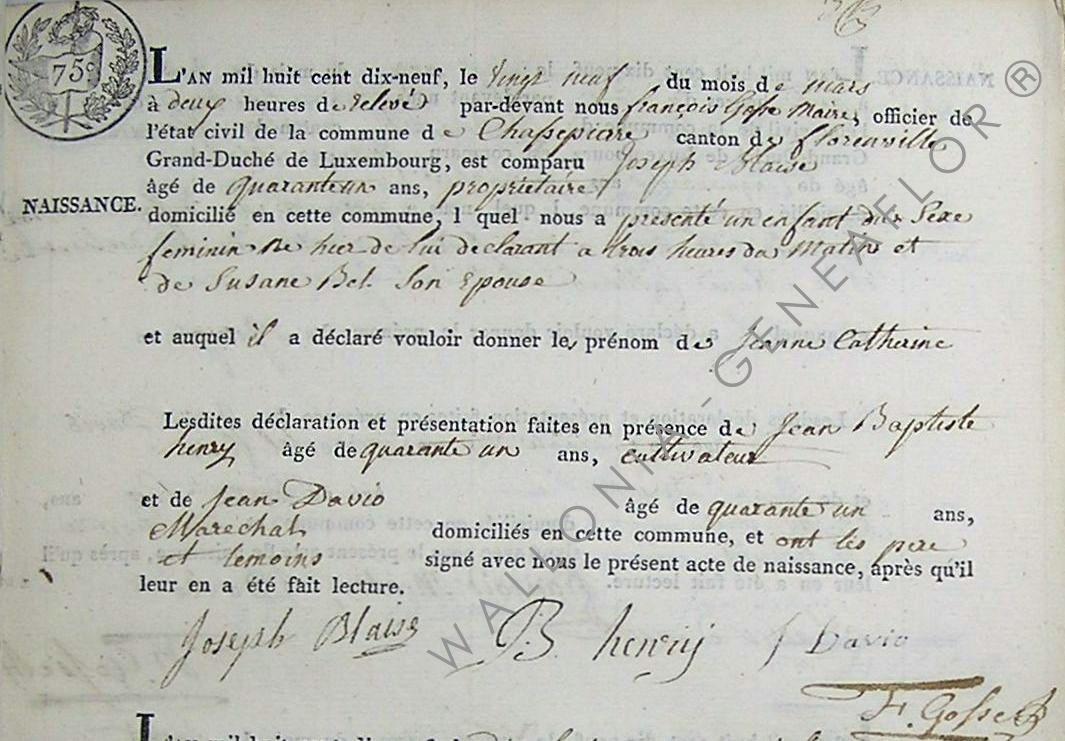 75c
L'AN mil huit cent dix-neuf, le vingt neuf du mois de mars
à deux heures de relevé par-devant nous françois Gosse Maire, officier de
l'état civil de la commune de Chassepierre canton de florenville
Grand-Duché de Luxembourg, est comparu Joseph Blaise
âgé de quarante un ans, propriétaire
NAISSANCE.
domicilié en cette commune, l quel nous a présenté un enfant du Sexe
feminin né hier de lui declarant a trois heures du Matin et
de Susane Bel Son Epouse
et auquel il a déclaré vouloir donner les prénom de Jeanne Catherine
Lesdites déclaration et présentation faites en présence de Jean Baptiste
henry âgé de quarante un ans, cultivateur
et de Jean David âgé de quarante un ans,
Marechal domiciliés en cette commune, et ont les pere
et temoins signé avec nous le présent acte de naissance, après qu'il
leur en a été fait lecture.
Joseph Blaise B henry J David
F. Gosse
WALLONIA - GENEAFLOR ®
NAISSANCE